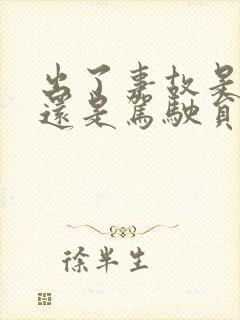 出了事故是
還是駕駛員
徐半生